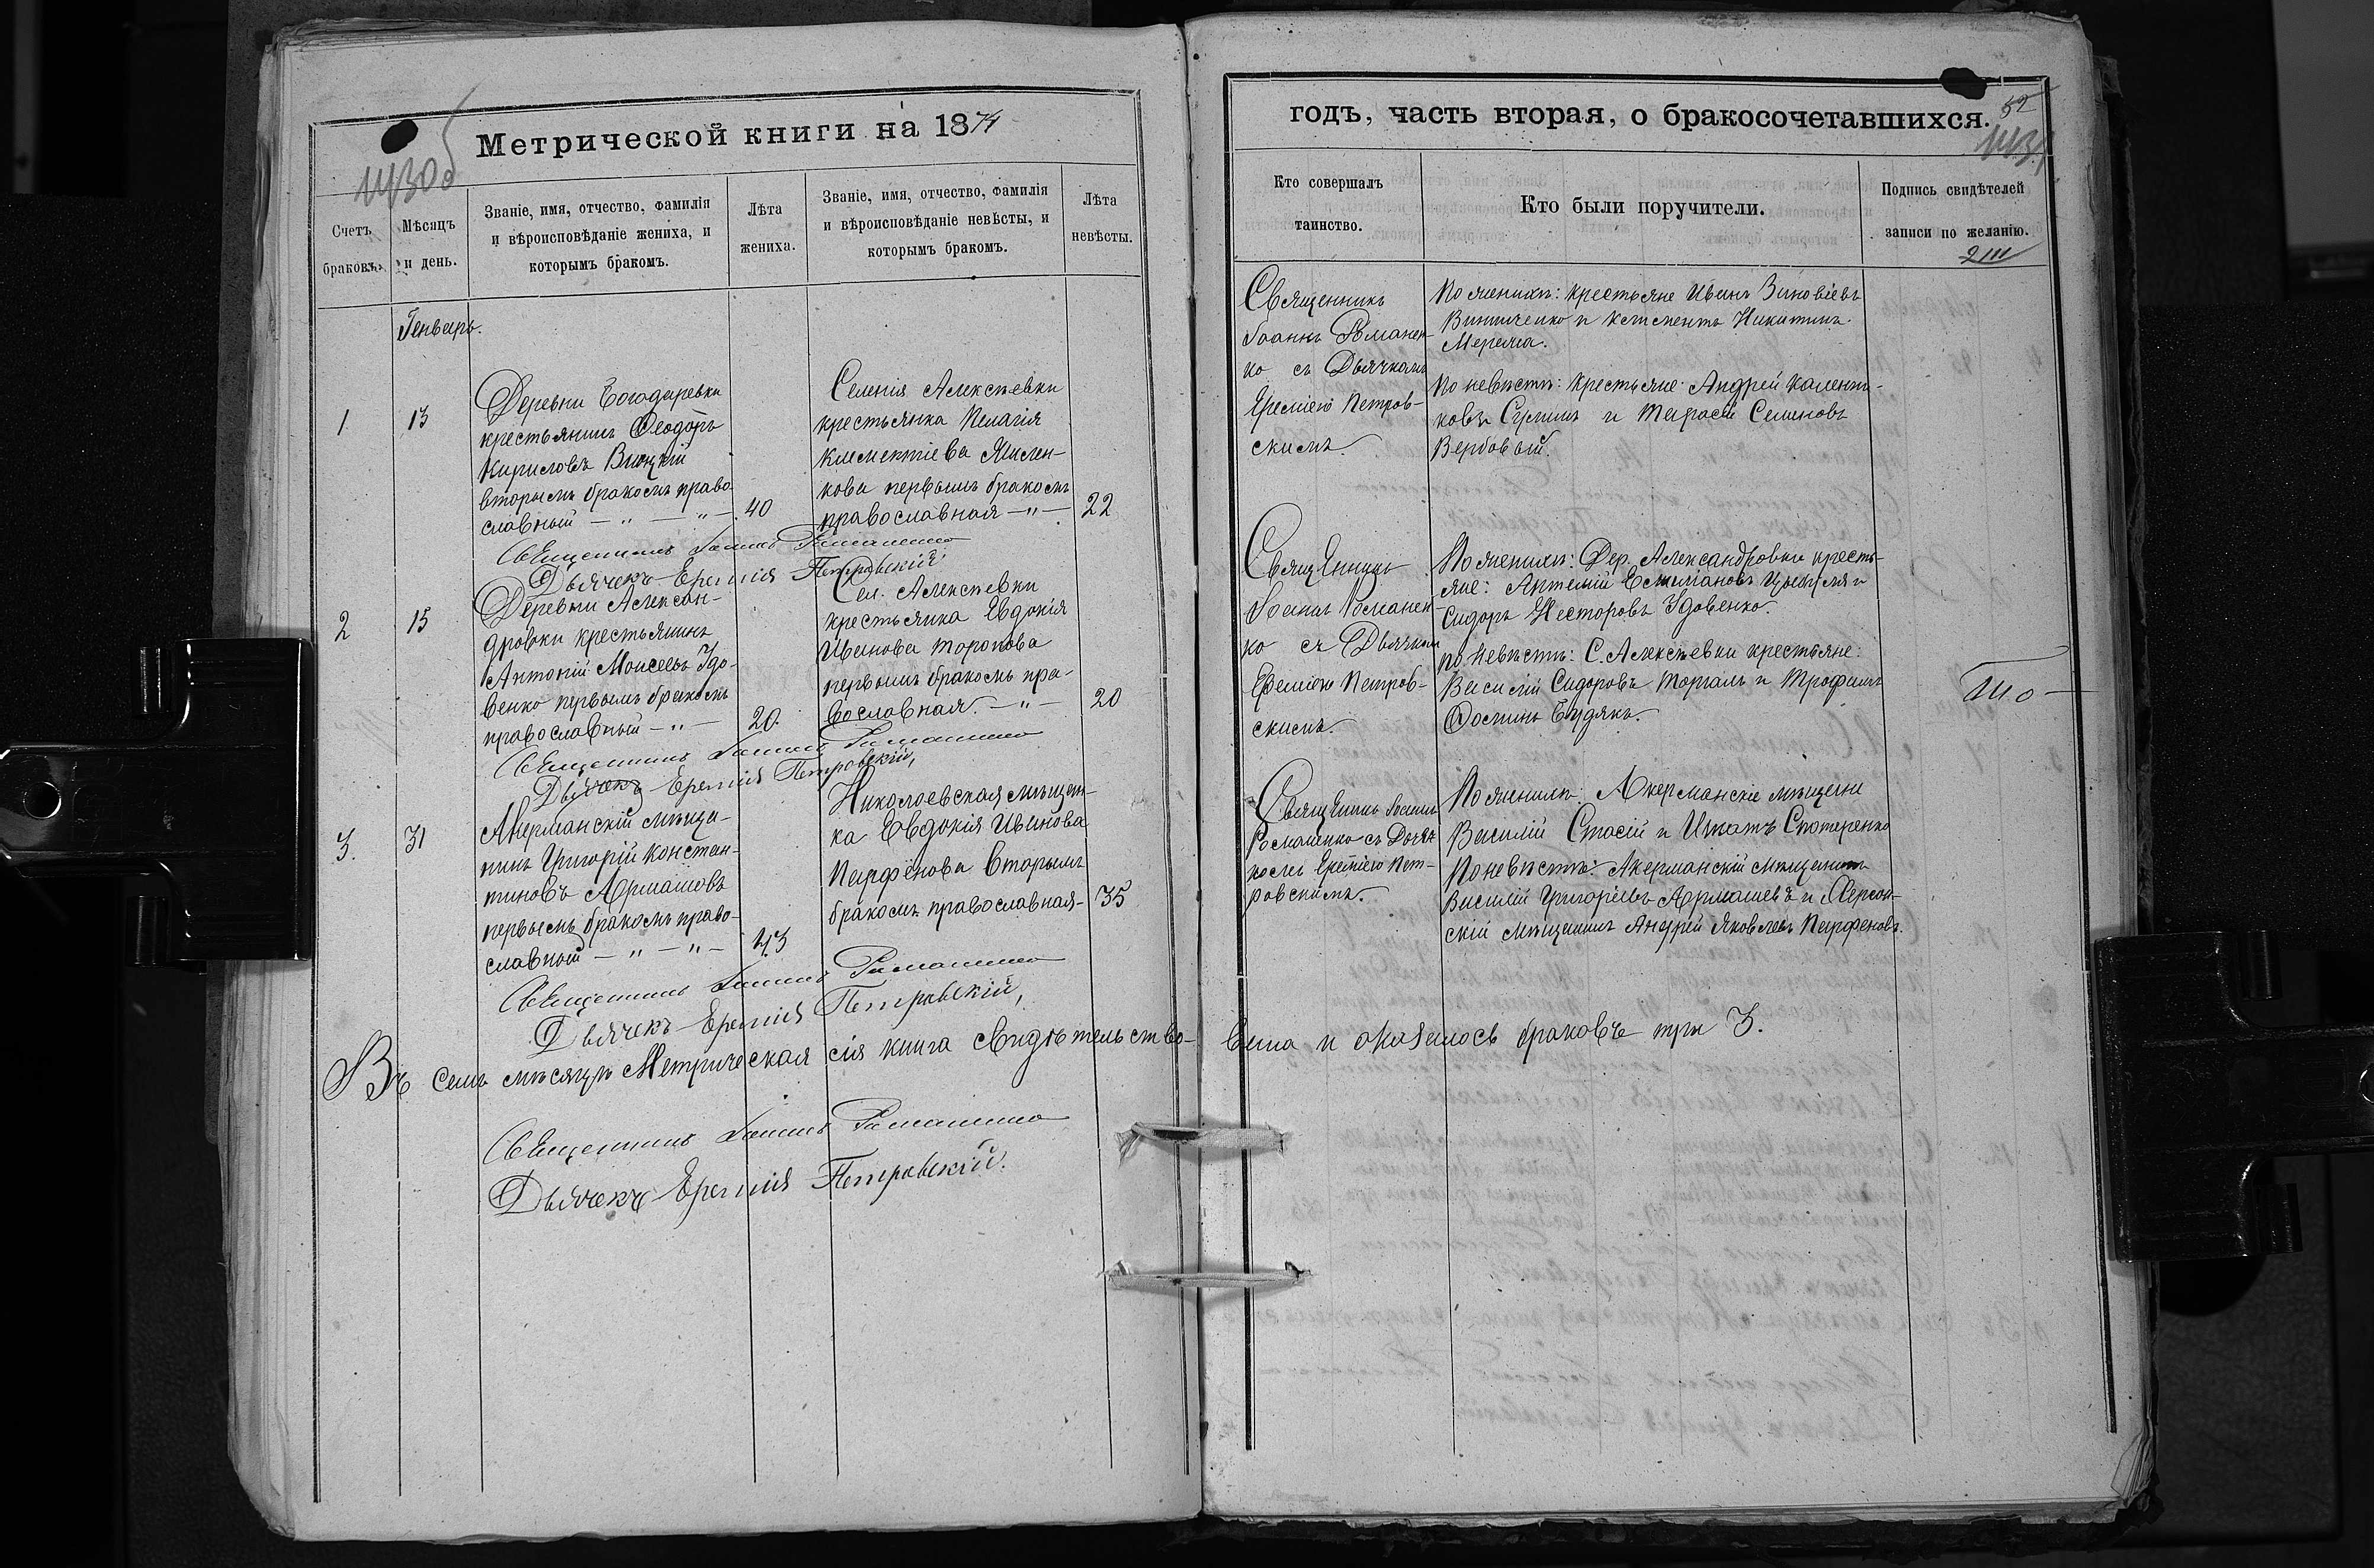 Метрической книги на 1874
1430 об
Счетъ браковъ.
Мѣсяцъ и день.
Званіе, имя, отчество, фамилія и вѣроисповѣданіе жениха, и которымъ бракомъ.
Лѣта жениха.
Званіе, имя, отчество, фамилія и вѣроисповѣданіе невѣсты, и которымъ бракомъ.
Лѣта невѣсты.
Генварь.
1
13
Деревни Богодаревки
крестьянинъ Ѳеодоръ
Кириловъ
вторымъ бракомъ право-
славный — „ — „ —
40
Селенія Алексѣевки
крестьянка Пелагія
Климентіева
кова первымъ бракомъ
православная — „ —
22
Священникъ Іоаннъ Романенко
Дьячекъ Еремія Петровскій
2
15
Деревни Алексан-
дровки крестьянинъ
Антоній Моисеевъ Удо-
венко первымъ бракомъ
православный — „ —
20.
Сел. Алексѣевки
крестьянка Евдокія
Иванова Торопова
первымъ бракомъ пра-
вославная. — „ —
20
Священникъ Іоаннъ Романенко
Дьячекъ Еремія Петровскій,
3.
31
Акерманскій мѣща-
нинъ Григорій Констан-
тиновъ Армашевъ
первымъ бракомъ право-
славный — „ — „ —
43
Николаевская мѣщан-
ка Евдокія Иванова
Парфенова вторымъ
бракомъ православная —
35
Священникъ Іоаннъ Романенко
Дьячекъ Еремія Петровскій,
Въ семъ мѣсяцѣ Метрическая сія книга свидѣтельство-
Священникъ Іоаннъ Романенко
Дьячекъ Еремія Петровскій.
годъ, часть вторая, о бракосочетавшихся.
52
1431
Кто совершалъ таинство.
Кто были поручители.
Подпись свидѣтелей записи по желанію.
Священникъ
Іоаннъ Романен-
ко съ Дьячкомъ
Ереміею Петров-
скимъ.
По женихѣ: крестьяне Иванъ Зиновіевъ
Винниченко и Климентъ Никитинъ
Мережа.
По невѣстѣ: крестьяне Андрей Калени-
ковъ и Тарасій Семеновъ
Вербовый.
Священникъ
Іоаннъ Романен-
ко съ Дьячкомъ
Ереміею Петров-
скимъ.
По женихѣ: Дер. Александровки кресть-
яне: Артемій и
Сидоръ Несторовъ Удовенко.
по невѣстѣ: С. Алексѣевки крестьяне:
Василій Сидоровъ и Трофимъ
Ѳоминъ Будякъ.
Священникъ Іоаннъ
Романенко съ Дьяч-
комъ Ереміею Пет-
ровскимъ.
По женихѣ: Акерманскіе мѣщане
Василій Стасій и Игнатъ
По невѣстѣ: Акерманскій мѣщанинъ
Василій Григоріевъ Армашевъ и Херсон-
скій мѣщанинъ Андрей Яковлевъ Парфеновъ.
вана и оказалось браковъ три 3.